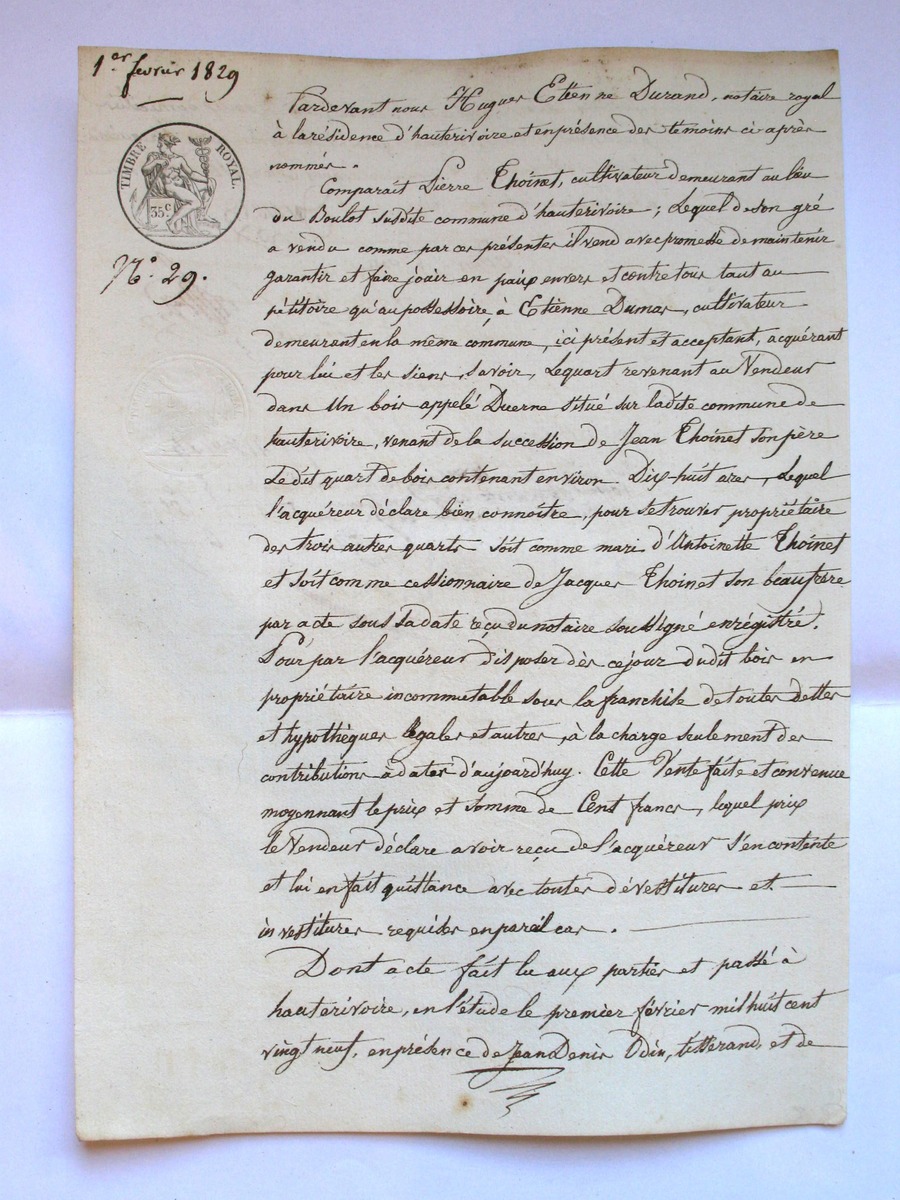 1.er fevrier 1829
TIMBRE ROYAL.
35c
N.o 29.
Pardevant nous Hugues Etienne Durand, notaire royal
à la résidence d'hauterivoire et en présence des temoins ci après
nommés.
Comparait Pierre Thoinet, cultivateur demeurant au lieu
du Boulot susdite commune d'hauterivoire ; Lequel de son gré
a vendu comme par ces présentes il vend avec promesse de maintenir
garantir et faire jouir en paix envers et contre tous tant au
pétitoire qu'au possessoire, à Etienne Dumas, cultivateur
demeurant en la même commune, ici présent et acceptant, acquérant
pour lui et les siens, savoir, Le quart revenant au Vendeur
dans Un bois appelé Duerne situé sur ladite commune de
hauterivoire, venant de la succession de Jean Thoinet son père
Ledit quart de bois contenant environ Dix-huit ares, Lequel
l'acquéreur déclare bien connoitre, pour se trouver propriétaire
des trois autres quarts soit comme mari d'Antoinette Thoinet
et soit comme cessionnaire de Jacques Thoinet son beaufrère
par acte sous sa date reçu du notaire soussigné enrégistré.
Pour par l'acquéreur disposer dès ce jour dudit bois en
propriétaire incommutable sous la franchise de toutes dettes
et hypothèques légales et autres, à la charge seulement des
contributions à dater d'aujourd'huy. Cette Vente faite et convenue
moyennant le prix et somme de Cent francs, lequel prix
le Vendeur déclare avoir reçu de l'acquéreur s'en contente
et lui en fait quittance avec toutes dévestitures et
investitures requises en pareil cas.
Dont acte fait lu aux parties et passé à
hauterivoire, en l'étude le premier février mil huit cent
vingt neuf, en présence de Jean Denis Odin, tisserand, et de